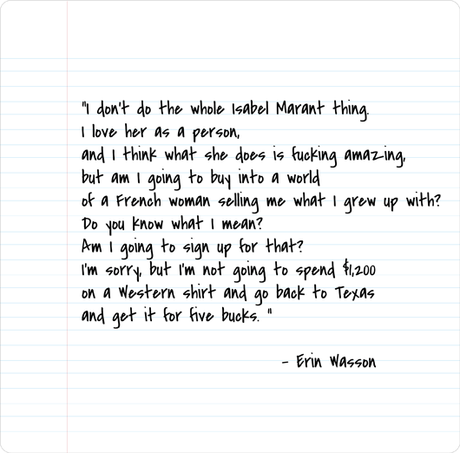 "I don't do the whole Isabel Marant thing.
I love her as a person,
and I think what she does is fucking amazing,
but am I going to buy into a world
of a French woman selling me what I grew up with?
Do you know what I mean?
Am I going to sign up for that?
I'm sorry, but I'm not going to spend $1,200
on a Western shirt and go back to Texas
and get it for five bucks. "
- Erin Wasson